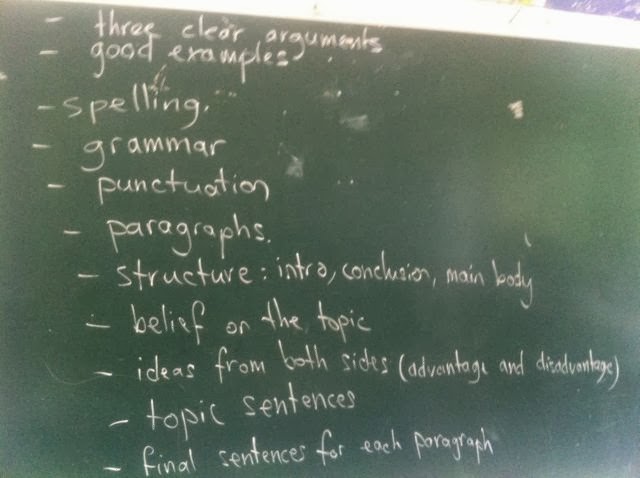 - three clear arguments
- good examples
- spelling.
- grammar
- punctuation
- paragraphs.
- structure: intro, conclusion, main body
- belief on the topic
- ideas from both sides (advantage and disadvantage)
- topic sentences
- final sentences for each paragraph